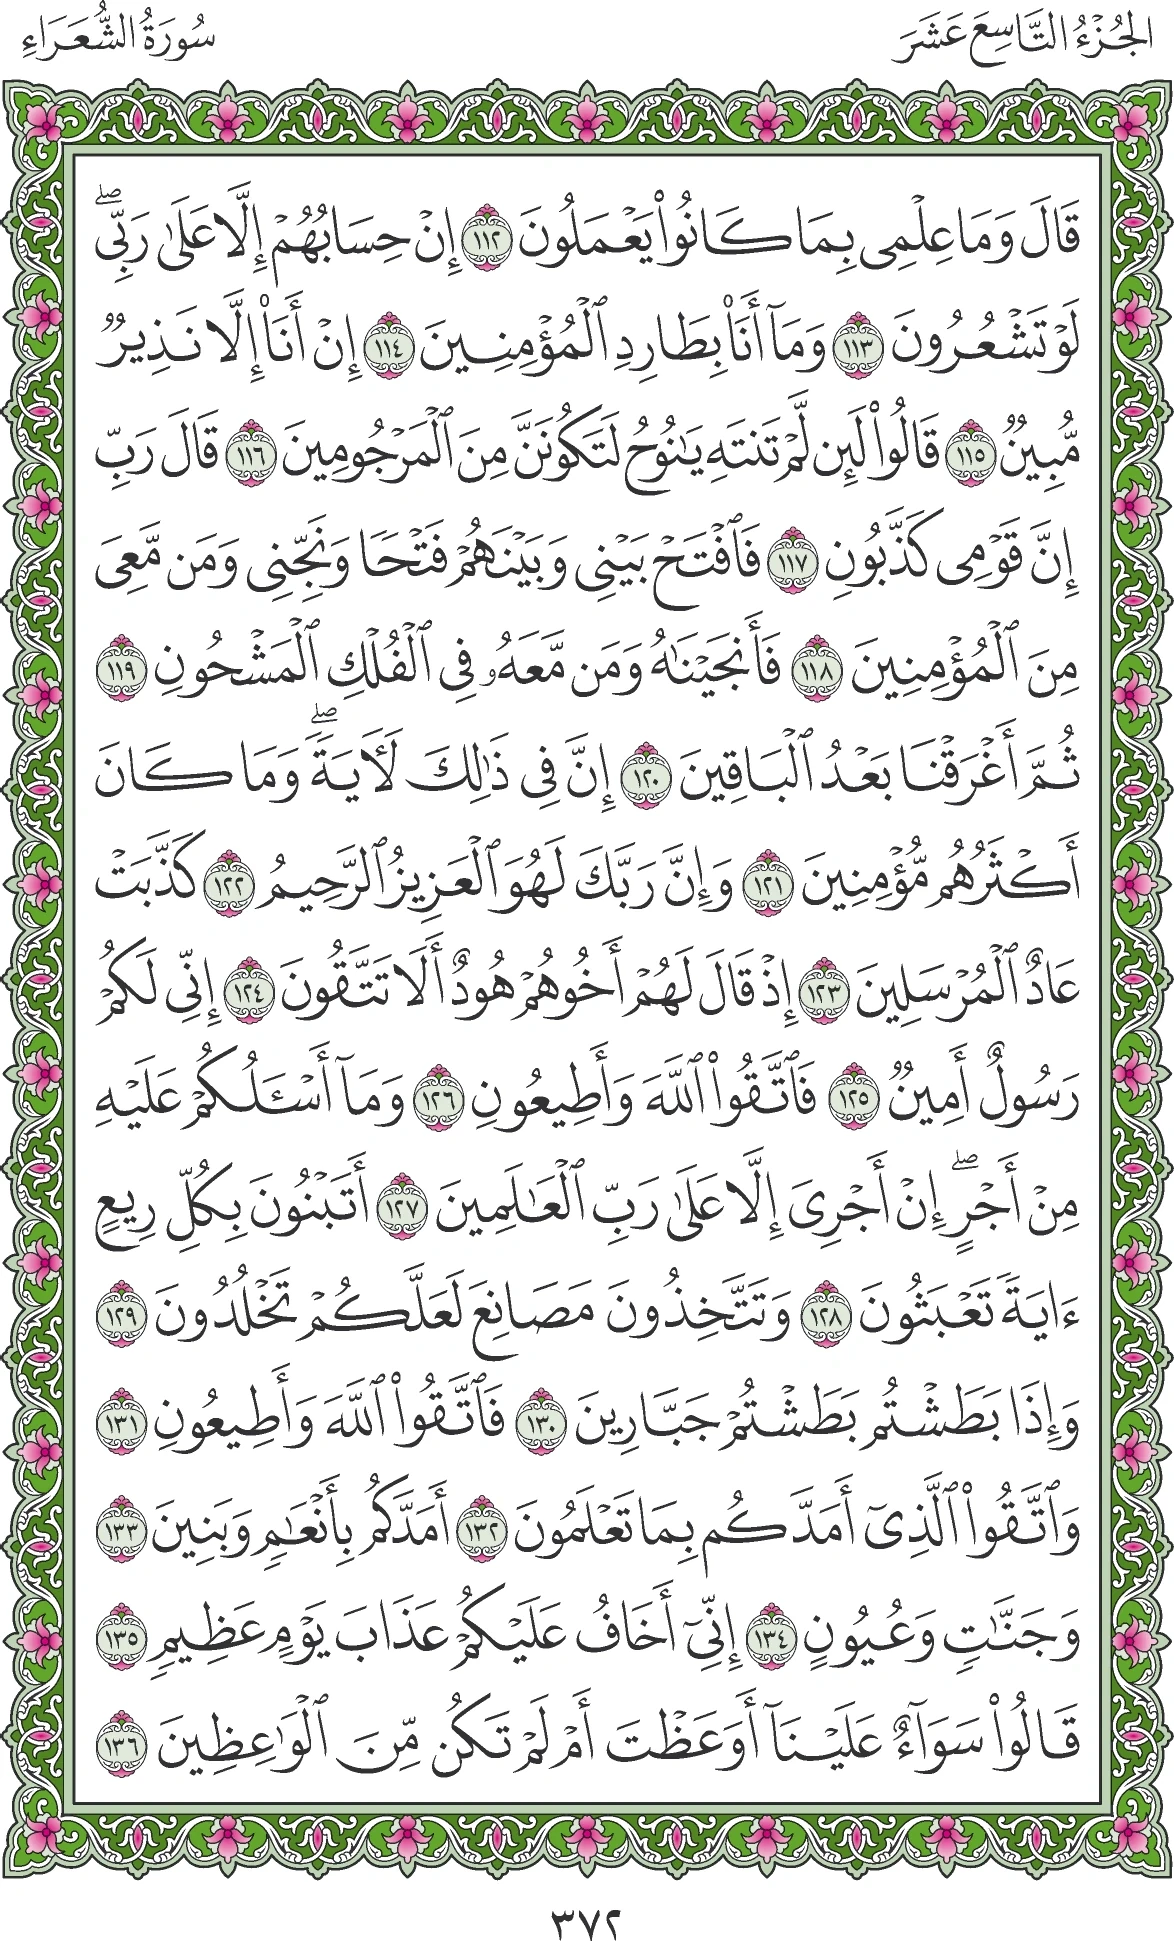 الجُزْءُ التَّاسِعَ عَشَرَ
سُورَةُ الشُّعَرَاءِ
قَالَ وَمَا عِلْمِى بِمَا كَانُوا۟ يَعْمَلُونَ ١١٢ إِنْ حِسَابُهُمْ إِلَّا عَلَىٰ رَبِّى ۖ
لَوْ تَشْعُرُونَ ١١٣ وَمَآ أَنَا۠ بِطَارِدِ ٱلْمُؤْمِنِينَ ١١٤ إِنْ أَنَا۠ إِلَّا نَذِيرٌ
مُّبِينٌ ١١٥ قَالُوا۟ لَئِن لَّمْ تَنتَهِ يَٰنُوحُ لَتَكُونَنَّ مِنَ ٱلْمَرْجُومِينَ ١١٦ قَالَ رَبِّ
إِنَّ قَوْمِى كَذَّبُونِ ١١٧ فَٱفْتَحْ بَيْنِى وَبَيْنَهُمْ فَتْحًا وَنَجِّنِى وَمَن مَّعِىَ
مِنَ ٱلْمُؤْمِنِينَ ١١٨ فَأَنجَيْنَٰهُ وَمَن مَّعَهُۥ فِى ٱلْفُلْكِ ٱلْمَشْحُونِ ١١٩
ثُمَّ أَغْرَقْنَا بَعْدُ ٱلْبَاقِينَ ١٢٠ إِنَّ فِى ذَٰلِكَ لَـَٔايَةً ۖ وَمَا كَانَ
أَكْثَرُهُم مُّؤْمِنِينَ ١٢١ وَإِنَّ رَبَّكَ لَهُوَ ٱلْعَزِيزُ ٱلرَّحِيمُ ١٢٢ كَذَّبَتْ
عَادٌ ٱلْمُرْسَلِينَ ١٢٣ إِذْ قَالَ لَهُمْ أَخُوهُمْ هُودٌ أَلَا تَتَّقُونَ ١٢٤ إِنِّى لَكُمْ
رَسُولٌ أَمِينٌ ١٢٥ فَٱتَّقُوا۟ ٱللَّهَ وَأَطِيعُونِ ١٢٦ وَمَآ أَسْـَٔلُكُمْ عَلَيْهِ
مِنْ أَجْرٍ ۖ إِنْ أَجْرِىَ إِلَّا عَلَىٰ رَبِّ ٱلْعَٰلَمِينَ ١٢٧ أَتَبْنُونَ بِكُلِّ رِيعٍ
ءَايَةً تَعْبَثُونَ ١٢٨ وَتَتَّخِذُونَ مَصَانِعَ لَعَلَّكُمْ تَخْلُدُونَ ١٢٩
وَإِذَا بَطَشْتُم بَطَشْتُمْ جَبَّارِينَ ١٣٠ فَٱتَّقُوا۟ ٱللَّهَ وَأَطِيعُونِ ١٣١
وَٱتَّقُوا۟ ٱلَّذِىٓ أَمَدَّكُم بِمَا تَعْلَمُونَ ١٣٢ أَمَدَّكُم بِأَنْعَٰمٍ وَبَنِينَ ١٣٣
وَجَنَّٰتٍ وَعُيُونٍ ١٣٤ إِنِّىٓ أَخَافُ عَلَيْكُمْ عَذَابَ يَوْمٍ عَظِيمٍ ١٣٥
قَالُوا۟ سَوَآءٌ عَلَيْنَآ أَوَعَظْتَ أَمْ لَمْ تَكُن مِّنَ ٱلْوَٰعِظِينَ ١٣٦
٣٧٢